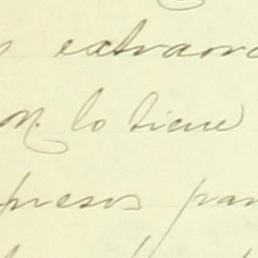 s extraor
on. lo tiene
presos par